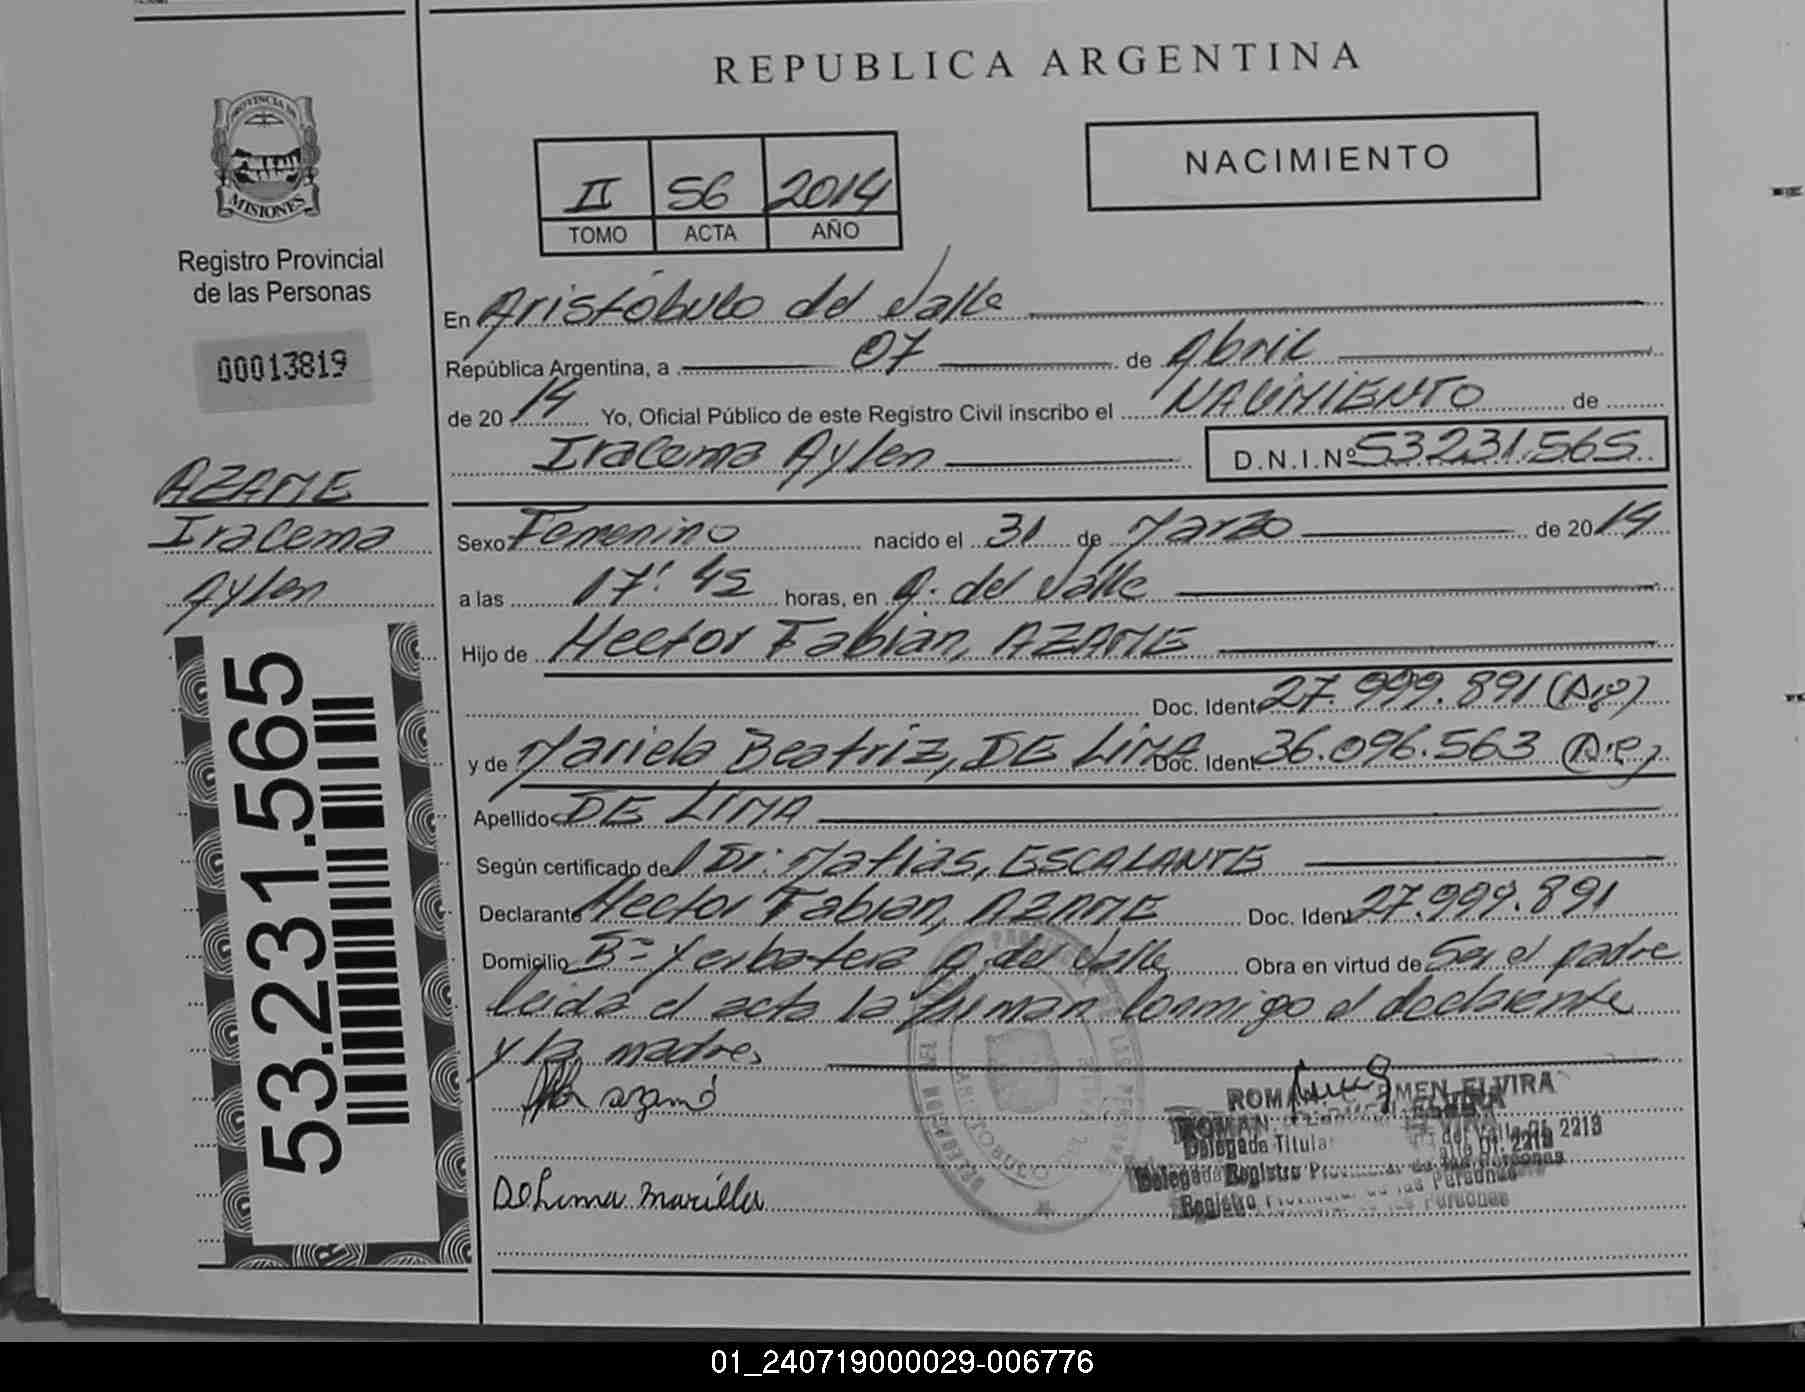 REPUBLICA ARGENTINA
PROVINCIA DE
MISIONES
Registro Provincial
de las Personas
00013819
AZAME
Iracema
Aylen
53.231.565
II 56 2014
TOMO ACTA AÑO
NACIMIENTO
En Aristóbulo del Valle
República Argentina, a 07 de Abril
de 20 14 Yo, Oficial Público de este Registro Civil inscribo el NACIMIENTO de
Iracema Aylen D.N.I.Nº 53231.565
Sexo Femenino nacido el 31 de Marzo de 20 14
a las 17: 45 horas, en A. del Valle
Hijo de Hector Fabian, AZAME
Doc. Ident. 27.999.891
y de Mariela Beatriz, DE LIMA Doc. Ident. 36.096.563
Apellido DE LIMA
Según certificado del Dr: Matias, ESCALANTE
Declarante Hector Fabian, AZAME Doc. Ident. 27.999.891
Domicilio Bº Yerbatera A. del Valle Obra en virtud de Ser el padre
leida el acta la firman conmigo el declarante
y la madre,
azamé
De Lima mariela
ROMAN ELVIRA
Delegada Titular
2213
Registro Provincial de las Personas
01_240719000029-006776